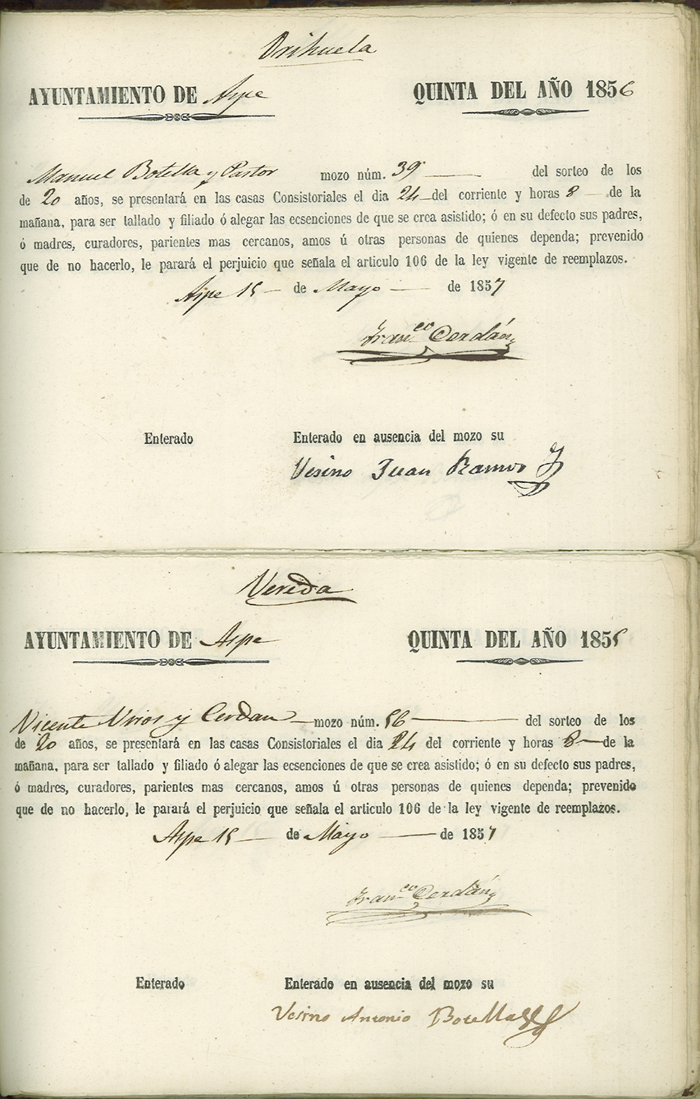 Orihuela
AYUNTAMIENTO DE Aspe QUINTA DEL AÑO 1856
Manuel Botella y Pastor mozo núm. 39 del sorteo de los
de 20 años, se presentará en las casas Consistoriales el dia 24 del corriente y horas 8 de la
mañana, para ser tallado y filiado ó alegar las ecsenciones de que se crea asistido; ó en su defecto sus padres,
ó madres, curadores, parientes mas cercanos, amos ú otras personas de quienes dependa; prevenido
que de no hacerlo, le parará el perjuicio que señala el articulo 106 de la ley vigente de reemplazos.
Aspe 15 de Mayo de 1857
Fran.co Cerdán
Enterado Enterado en ausencia del mozo su
Vesino Juan Ramos
Vereda
AYUNTAMIENTO DE Aspe QUINTA DEL AÑO 1855
Vicente Urios y Cerdan mozo núm. 56 del sorteo de los
de 20 años, se presentará en las casas Consistoriales el dia 24 del corriente y horas 8 de la
mañana, para ser tallado y filiado ó alegar las ecsenciones de que se crea asistido; ó en su defecto sus padres,
ó madres, curadores, parientes mas cercanos, amos ú otras personas de quienes dependa; prevenido
que de no hacerlo, le parará el perjuicio que señala el articulo 106 de la ley vigente de reemplazos.
Aspe 15 de Mayo de 1857
Fran.co Cerdán
Enterado Enterado en ausencia del mozo su
Vesino Antonio Botella